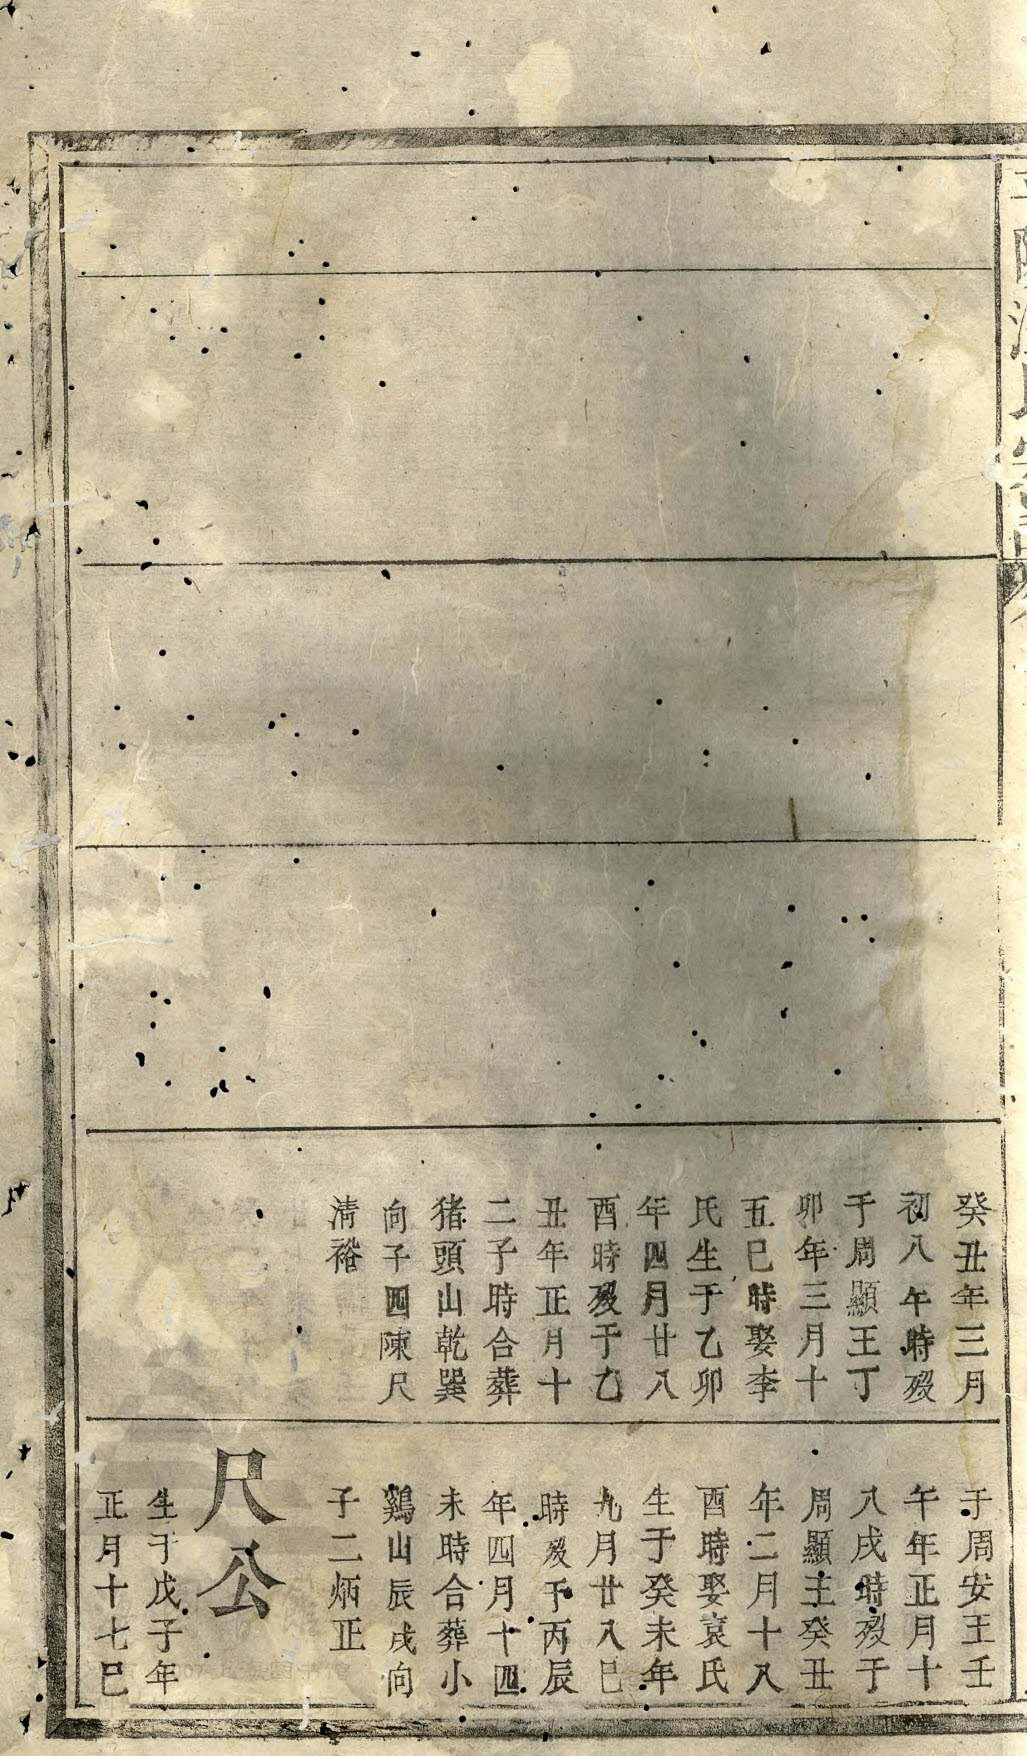 癸丑年三月
初八午時歿
于周顯王丁
卯年三月十
五巳時娶李
氏生于乙卯
年四月廿八
酉時歿于乙
丑年正月十
二子時合葬
猪頭山乾巽
向子四陳尺
清裕
于周安王壬
午年正月十
八戌時歿于
周顯王癸丑
年二月十八
酉時娶袁氏
生于癸未年
九月廿八巳
時歿于丙辰
年四月十四
未時合葬小
鷄山辰戌向
子二炳正
尺公
生于戊子年
正月十七巳